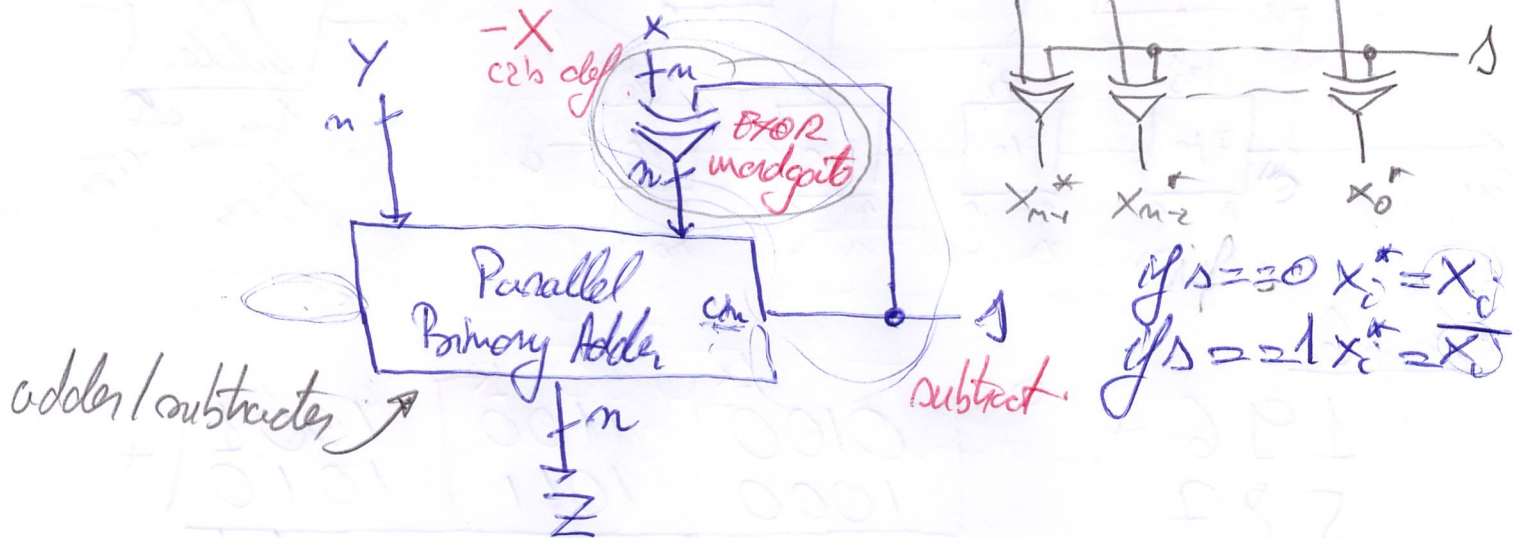 -X
c2b def.
X
n
Y
n
EXOR
wordgate
n
Parallel
Binary Adder
cin
s
subtract.
adder/subtracter
n
Z
s
Xn-1* Xn-2* X0*
if s==0 xi*=xi
if s==1 xi*=x̅i